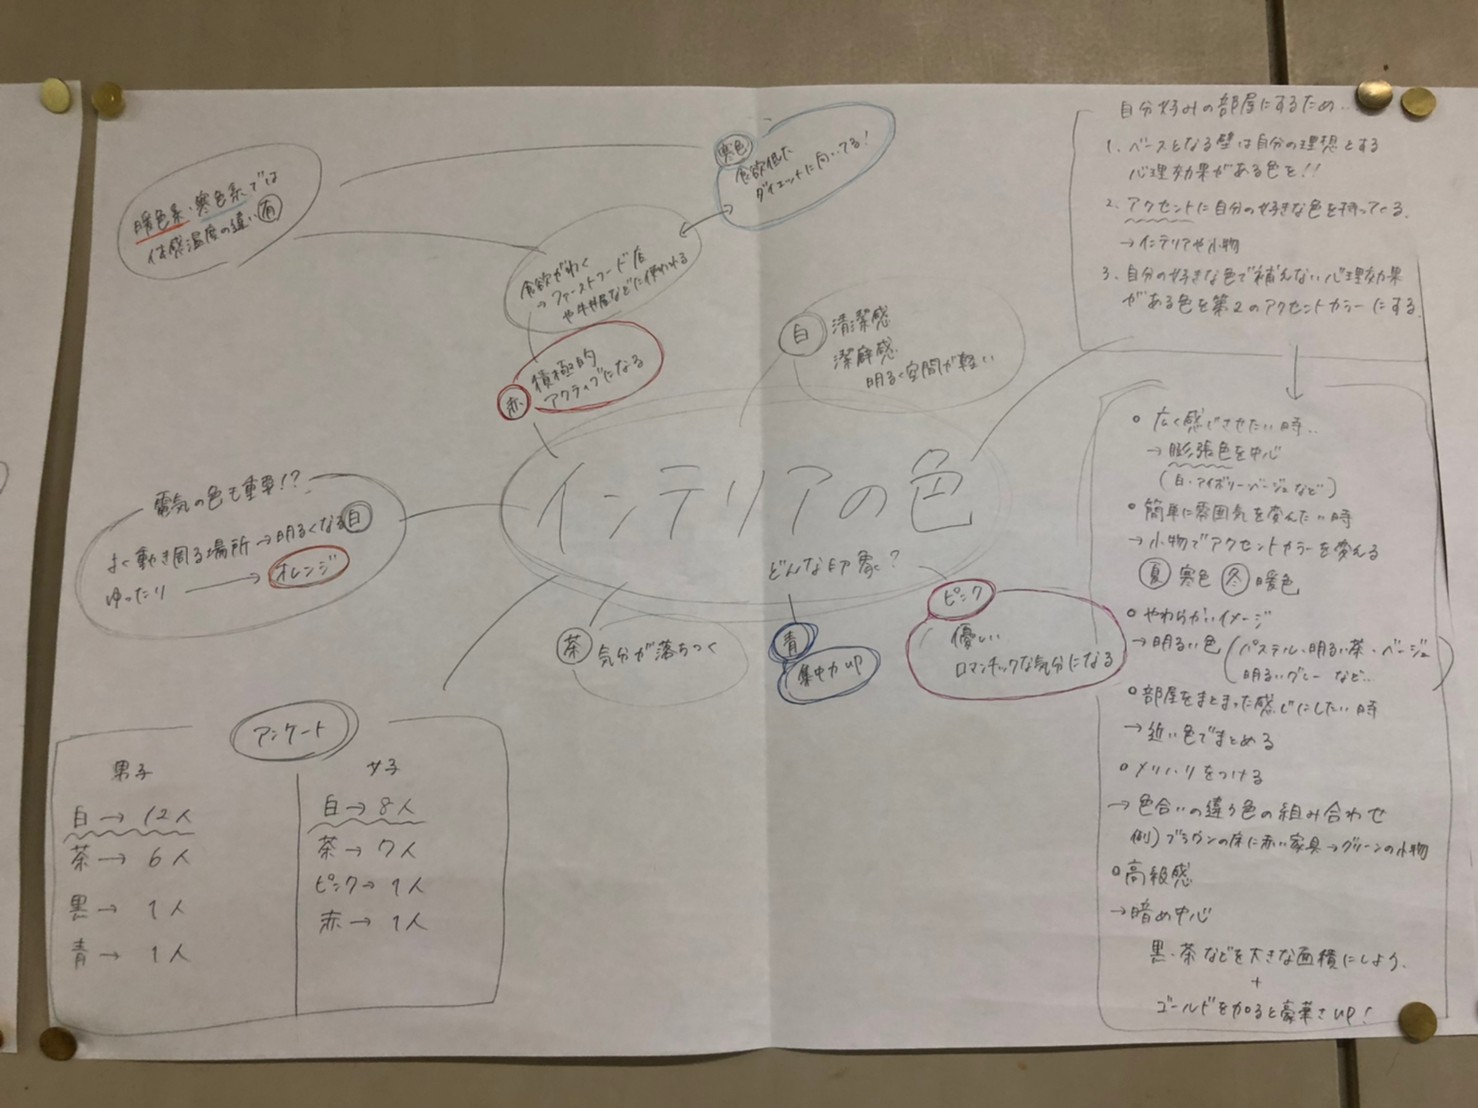 暖色系・寒色系では
体感温度の違い有
寒色
食欲低下
ダイエットに向いてる!
食欲がわく
→ファーストフード店
や牛丼屋などに使われる
赤
積極的
アクティブになる
白
清潔感
潔癖感
明るく空間が軽い
インテリアの色
どんな印象?
電気の色も重要!?
よく動き回る場所→明るくなる白
ゆったり→オレンジ
茶 気分が落ちつく
青
集中力up
ピンク
優しい
ロマンチックな気分になる
アンケート
男子
白→12人
茶→6人
黒→1人
青→1人
女子
白→8人
茶→7人
ピンク→1人
赤→1人
自分好みの部屋にするため..
1. ベースとなる壁は自分の理想とする
心理効果がある色を!!
2. アクセントに自分の好きな色を持ってくる.
→インテリアや小物
3. 自分の好きな色で補えない心理効果
がある色を第2のアクセントカラーにする.
○広く感じさせたい時..
→膨張色を中心
(白・アイボリー・ベージュなど)
○簡単に雰囲気を変えたい時
→小物でアクセントカラーを変える
夏 寒色 冬 暖色
○やわらかいイメージ
→明るい色(パステル・明るい茶・ベージュ
明るいグレーなど...)
○部屋をまとまった感じにしたい時
→近い色でまとめる
○メリハリをつける
→色合いの違う色の組み合わせ
例)ブラウンの床に赤い家具→グリーンの小物
○高級感
→暗め中心
黒・茶などを大きな面積にしよう.
+
ゴールドを加ると豪華さup!